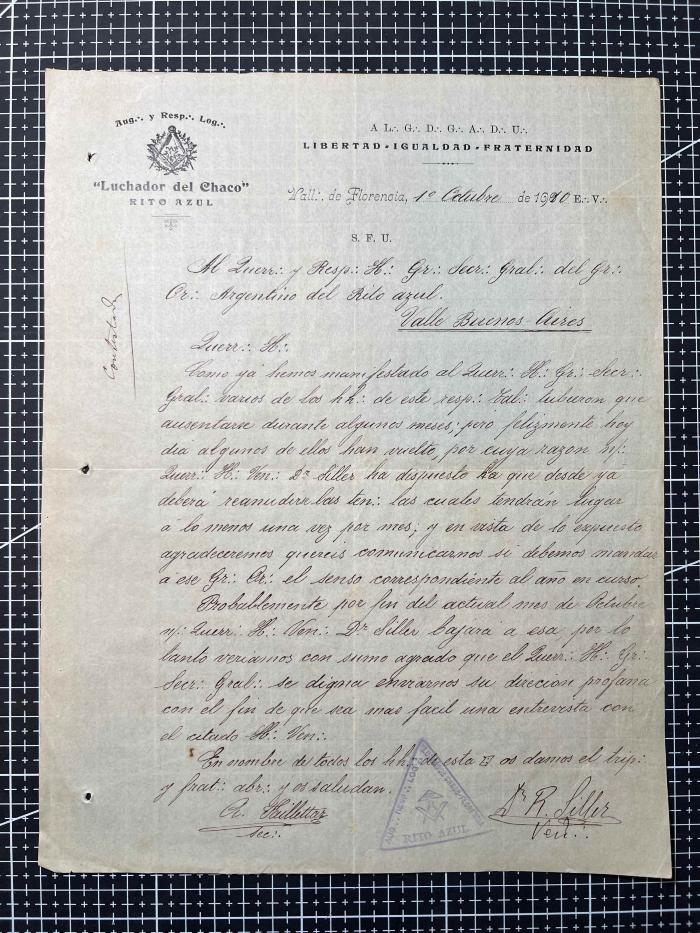 Aug.·. y Resp.·. Log.·.
"Luchador del Chaco"
RITO AZUL
A L.·. G.·. D.·. G.·. A.·. D.·. U.·.
LIBERTAD - IGUALDAD - FRATERNIDAD
Vall.·. de Florencia, 1º Octubre de 1910 E.·. V.·.
S. F. U.
Al Querr.·. y Resp.·. H.·. Gr.·. Secr.·. Gral.·. del Gr.·.
Or.·. Argentino del Rito azul.
Valle Buenos-Aires
Querr.·. H.·.
Contestada
Como yá hemos manifestado al Querr.·. H.·. Gr.·. Secr.·.
Gral.·. varios de los hh.·. de este resp.·. Tal.·. tuberon que
ausentarse durante algunos meses; pero felizmente hoy
dia algunos de ellos han vuelto, por cuya razon n/.·.
Querr.·. H.·. Ven.·. Dr Siller ha dispuesto que desde ya
deberá reanudirse las ten.·. las cuales tendrán lugar
á lo menos una vez por mes; y en vista de lo expuesto
agradeceremos quereis comunicarnos si debemos mandar
a ese Gr.·. Or.·. el senso correspondiente al año en curso.
Probablemente por fin del actual mes de Octubre
n/.·. Querr.·. H.·. Ven.·. Dr Siller bajará a esa por lo
tanto veriamos con sumo agrado que el Querr.·. H.·. Gr.·.
Secr.·. Gral.·. se digna enviarnos su direcion profana
con el fin de que sea mas facil una entrevista con
el citado H.·. Ven.·.
En nombre de todos los hh.·. de esta os damos el trip.·.
y frat.·. abr.·. y os saludan.
A.
Sec.·.
RITO AZUL
Dr R. Siller
Ven.·.